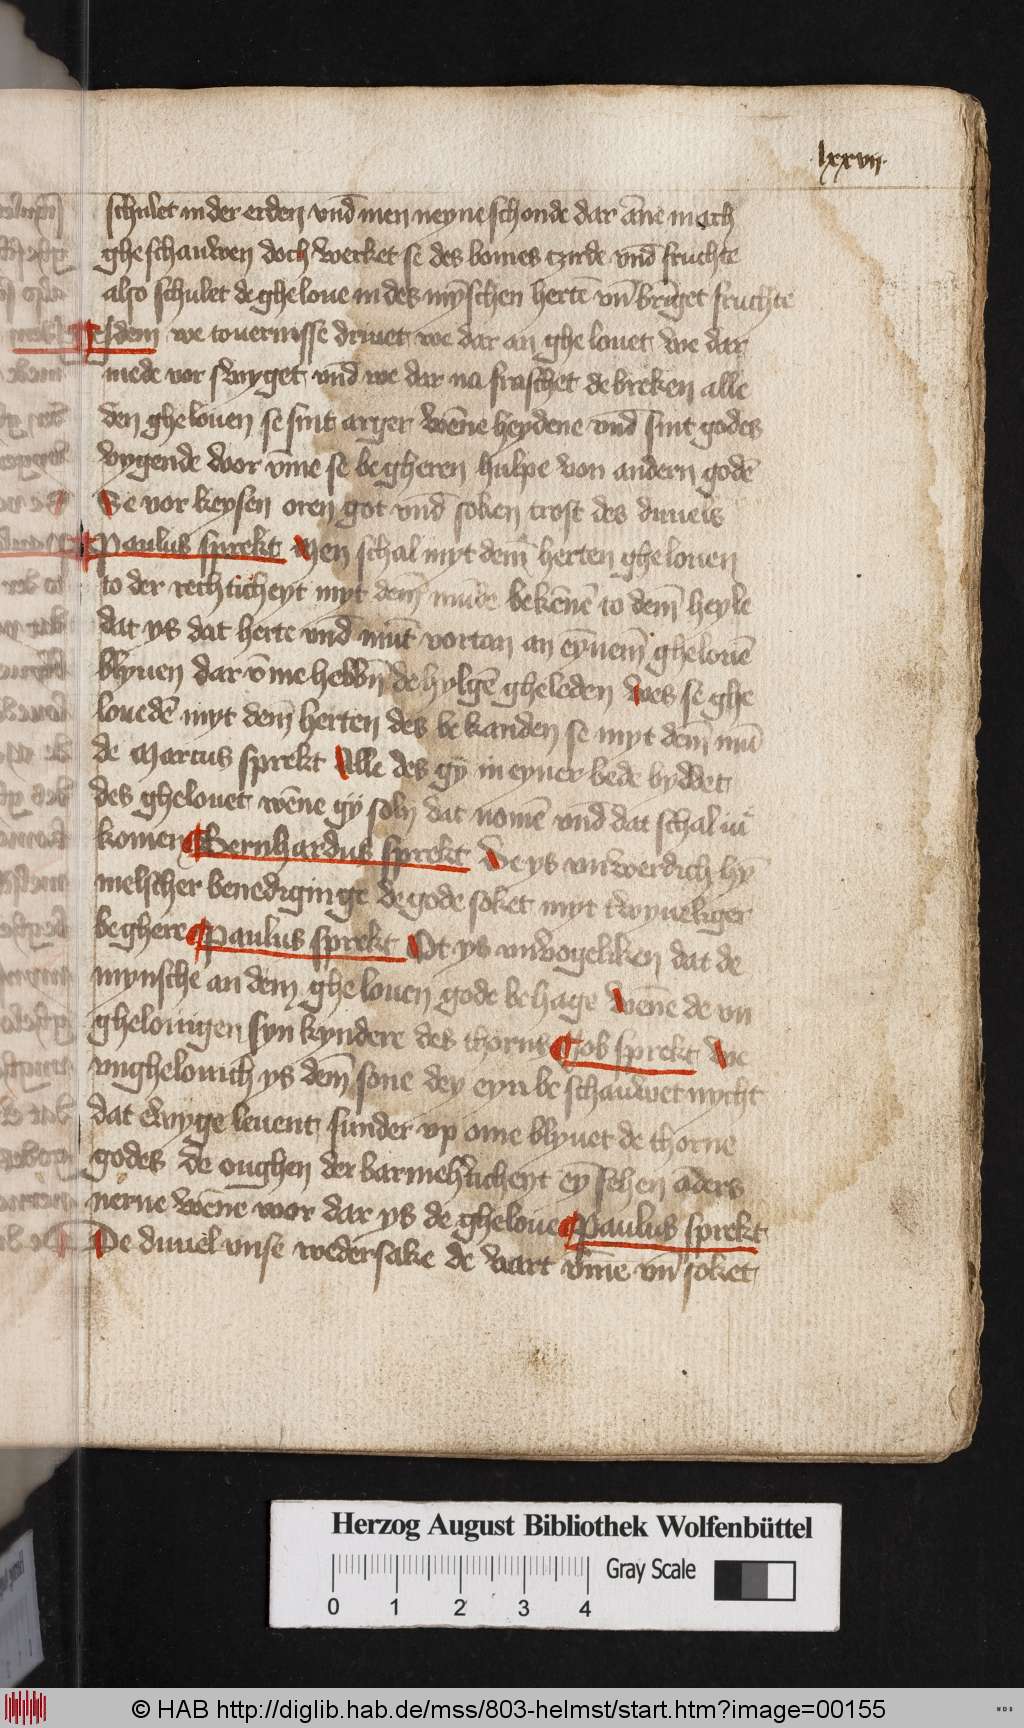 lxxvij
schulet in der erden vnd men neyne schonde dar āne mach
ghe schauwen doch wecket se des bomes czirde vnd fruchte
also schulet de ghe loue in des mȳschen hertē vn̄ brīget fruchte
esdem we touernisse driuet we dar an ghe louet we dar
mede vor swyget vnd we dar na fraschet de breken alle
den ghe louen se sint arger wēne heydene vnd sint godes
vygende dvor v̄me se be gheren hulpe von andern godē
Se vor keysen oren got vnd soken trost des duuels
Paulus sprekt Men schal myt dem̄ herten ghe louen
to der rechticheyt myt dem̄ mūde bekēnē to dem̄ heyle
dat ys dat herte vnd mūt vortan an eȳnem̄ ghelouē
blyuen dar v̄me hebbn̄ de hylgē gheleden wes se ghe
louedē myt dem̄ herten des be kanden se myt dem̄ mū
de Marcus sprekt Alle des gy in eyner bede byddet
des ghelouet wēne gy soln̄ dat nomē vnd dat schal iu
komen Bernhardus sprekt De ys vnwerdich hȳ
melscher benediginge de gode soket myt twyueliger
be ghere Paulus sprekt Ot ys vnvogeliken dat de
mynsche an dem ghe louen gode be hage wēne de vn
ghelouigen syn kyndere des thorns Job sprekt We
vnghelouich ys dem̄ sone dey eyn be schauwet nycht
dat ewyge leuent sunder vp ome blyuet de thorne
godes De oughen der barmehrticheyt eȳ sehen āders
nerne wēne wor dar ys de ghe loue Paulus sprekt
De duuel vnse wedersake de wart v̄me vn̄ soket
Herzog August Bibliothek Wolfenbüttel
Gray Scale
0 1 2 3 4
© HAB http://diglib.hab.de/mss/803-helmst/start.htm?image=00155